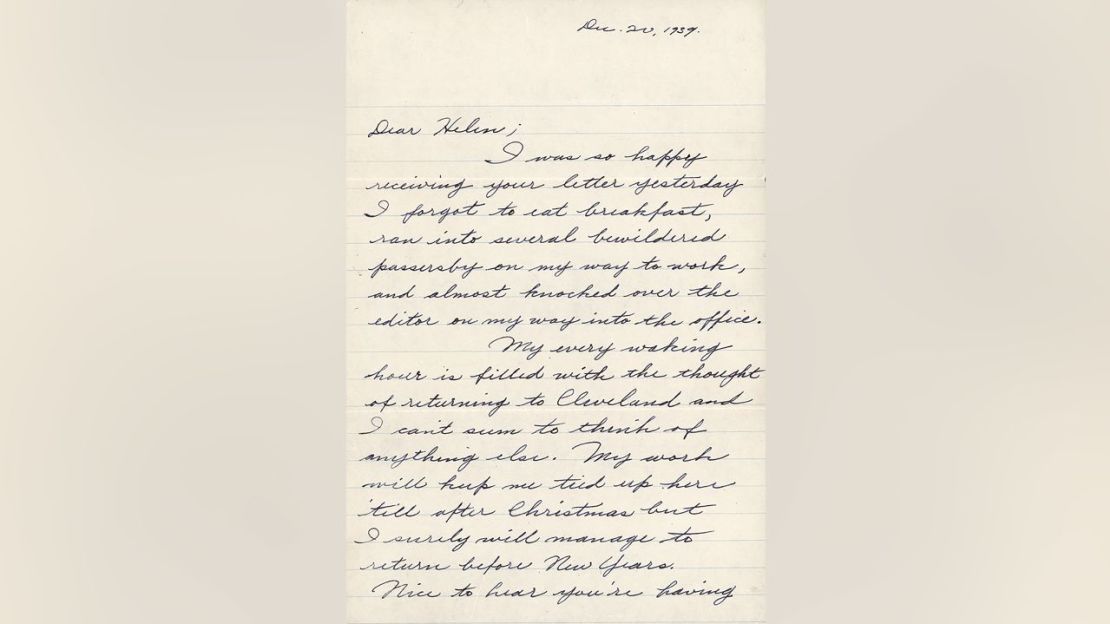 Dec. 20, 1939.
Dear Helen;
I was so happy
receiving your letter yesterday
I forgot to eat breakfast,
ran into several bewildered
passersby on my way to work,
and almost knocked over the
editor on my way into the office.
My every waking
hour is filled with the thought
of returning to Cleveland and
I can't seem to think of
anything else. My work
will keep me tied up here
'till after Christmas but
I surely will manage to
return before New Years.
Nice to hear you're having